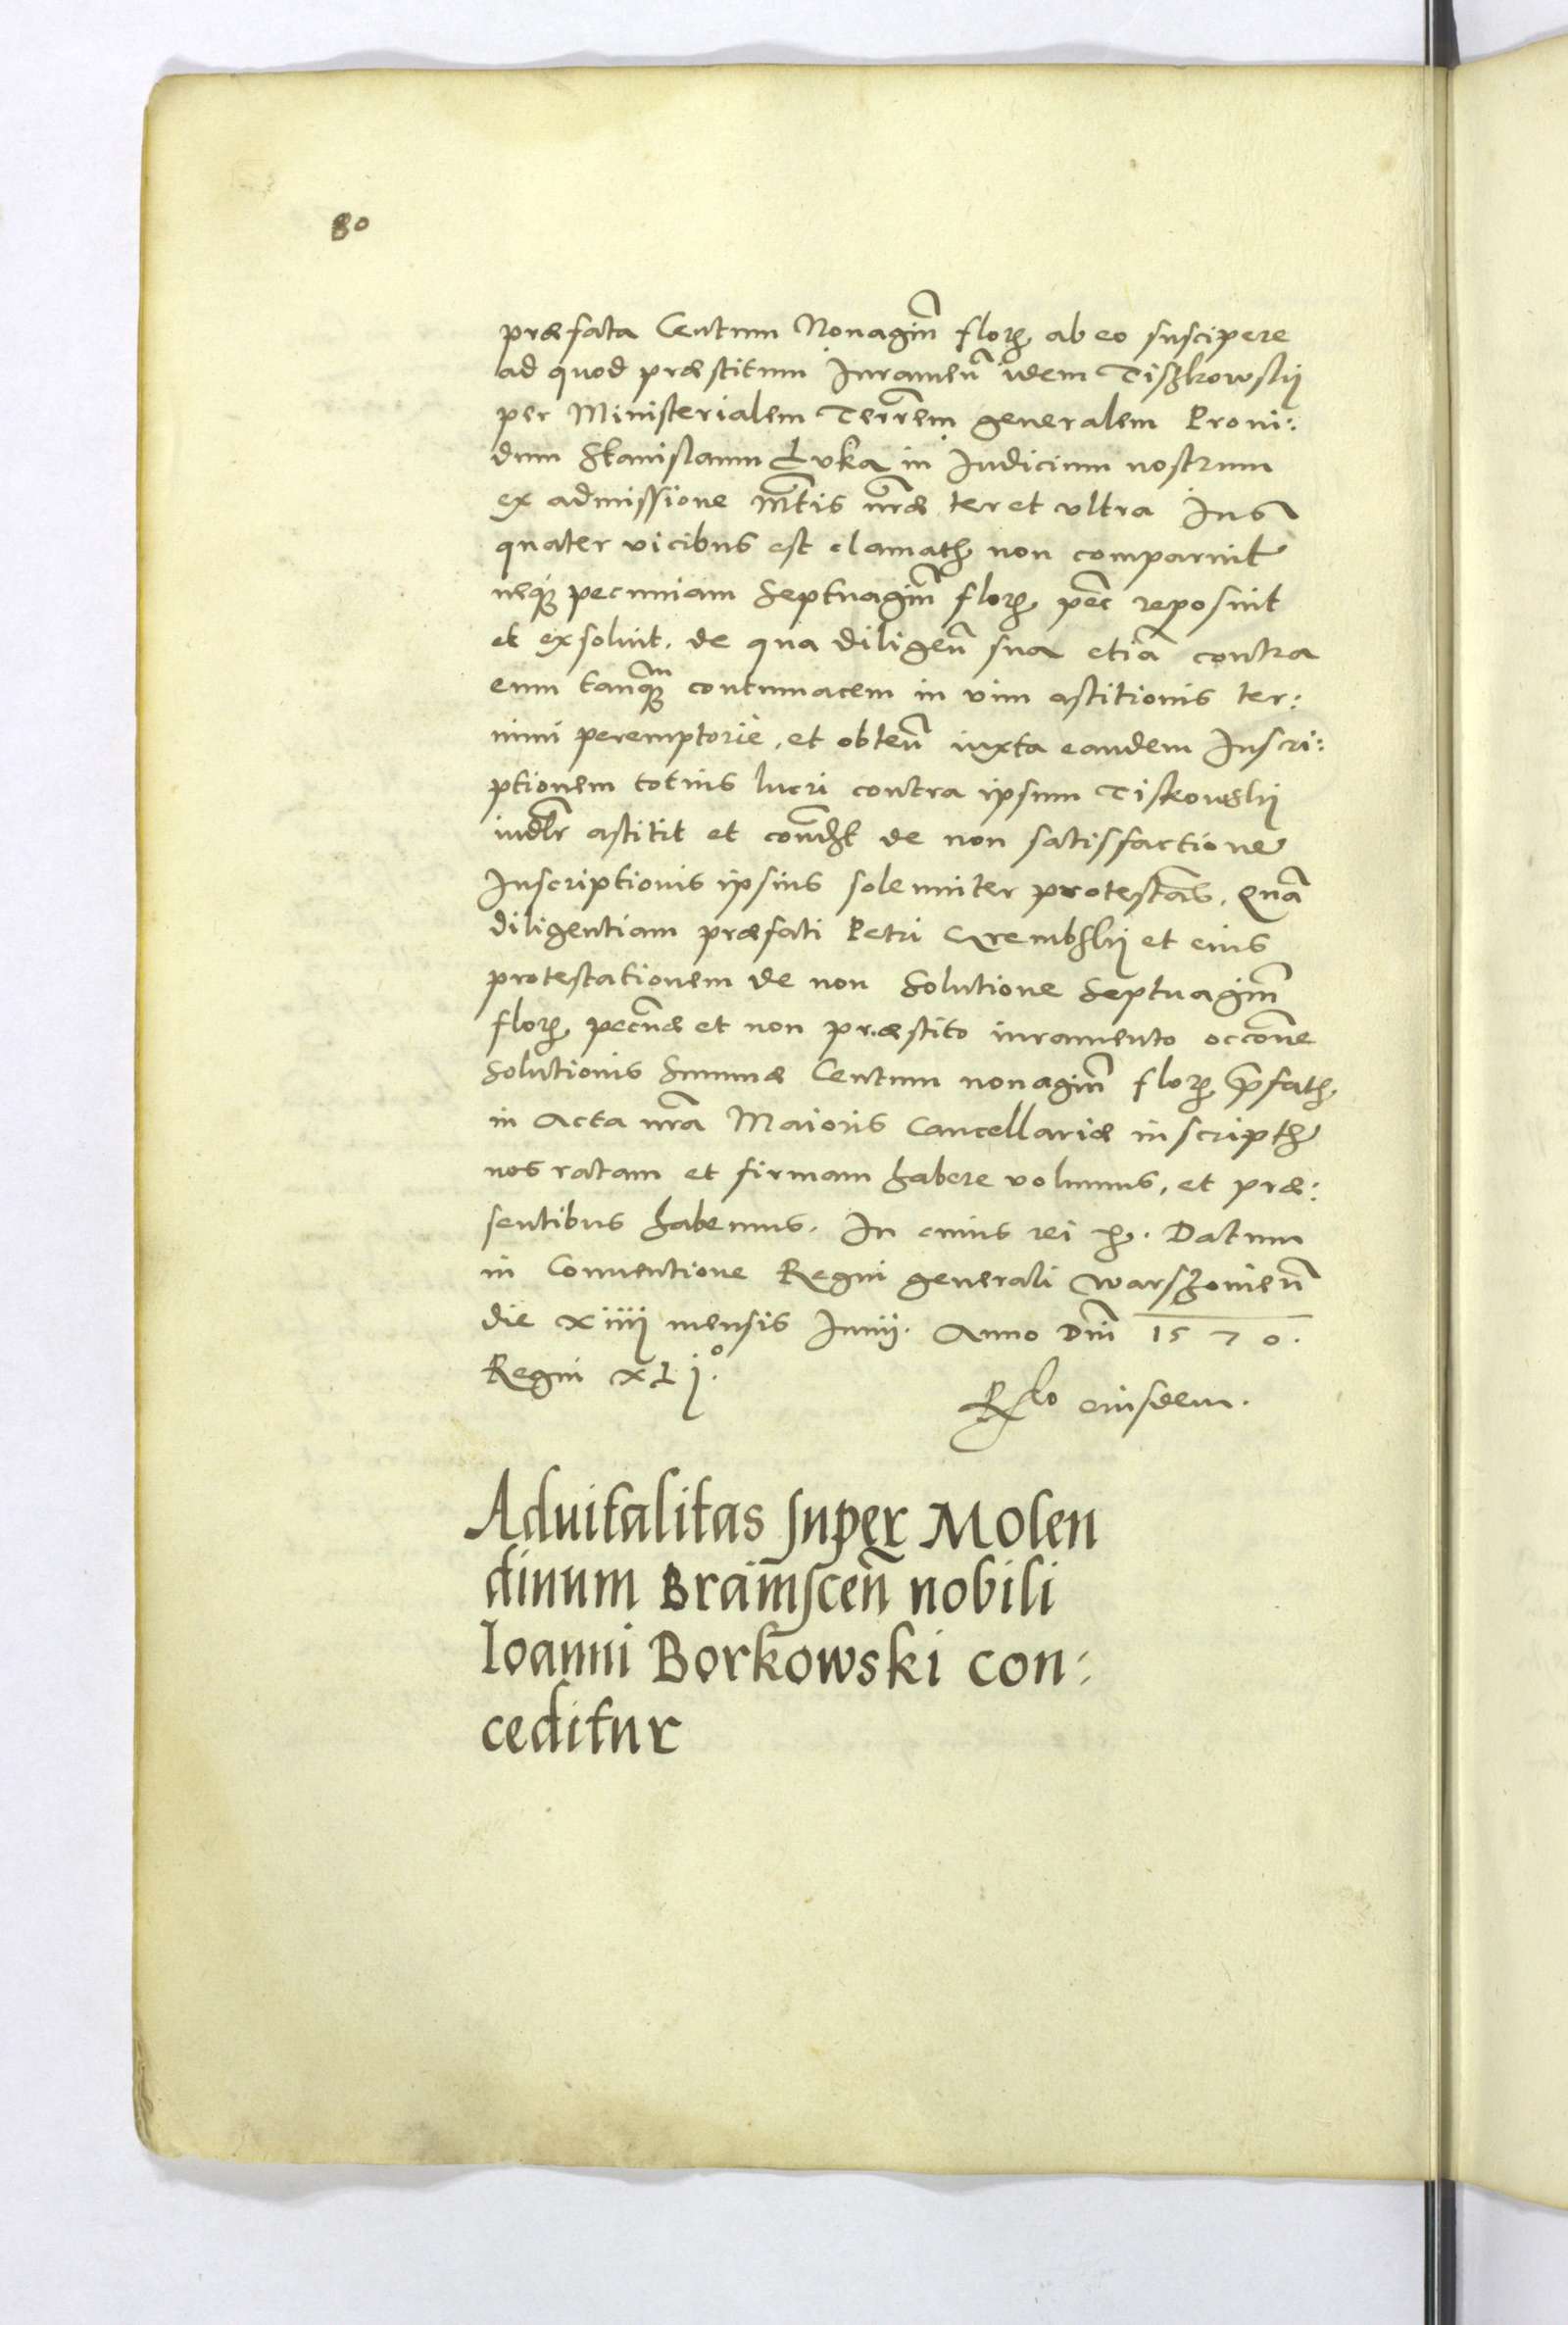 80
præfata Centum Nonagin͂ flor. ab eo suscipere
ad quod præstitum Iuramen͂ idem Tiszkowskÿ
per Ministerialem Terrem͂ generalem Proui:
dum Stanislaum Łuka in Iudicium nostrum
ex admissione Mt͂is nr͂æ ter et vltra Ius͂
quater vicibus est clamat. non comparuit
neq; pecuniam Septuagin͂ flor. pec͂ reposuit
et exsoluit. de qua diligen͂ sua etiã contra
eum tanq;m contumacem in vim astitionis ter:
mini peremptorie, et obten͂ iuxta eandem Inscri:
ptionem totius lucri contra ipsum Tiskowskÿ
iudlr͂ astitit et de non satisfactione
Inscriptionis ipsius solemniter protestat͂. Quã
diligentiam præfati Petri Crembskÿ et eius
protestationem de non Solutione Septuagin͂
flor. pecun͂æ et non præstito iuramento occõne
Solutionis Summæ Centum nonagin͂ flor. p͂fat.
in Acta nr͂a Maioris Cancellariæ inscript.
nos ratam et firmam habere volumus, et præ:
sentibus habemus. In cuius rei &c. Datum
in Conuentione Regni generali Warszouien͂
die xiiij mensis Iunij. Anno Dn͂i 1570.
Regni xLj.°
R͂lo eiusdem.
Aduitalitas super Molen
dinum Bram̃scen͂ nobili
Ioanni Borkowski con:
ceditur